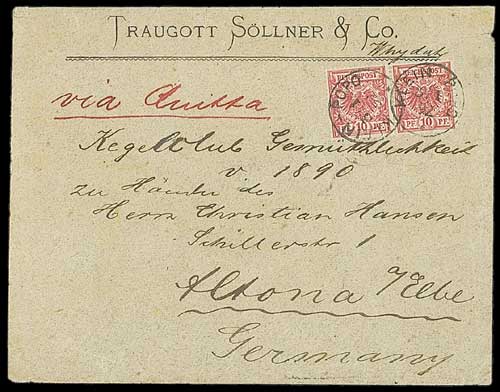 TRAUGOTT SÖLLNER & CO.
Whydah
REICHSPOST REICHSPOST
10 PF. 10 PF. 10
KLEIN-POPO KLEIN
via Quitta
Kegelclub Gemüthlichkeit
v. 1890
zu Händen des
Herrn Christian Hansen
Schillerstr 1
Altona a/Elbe
Germany